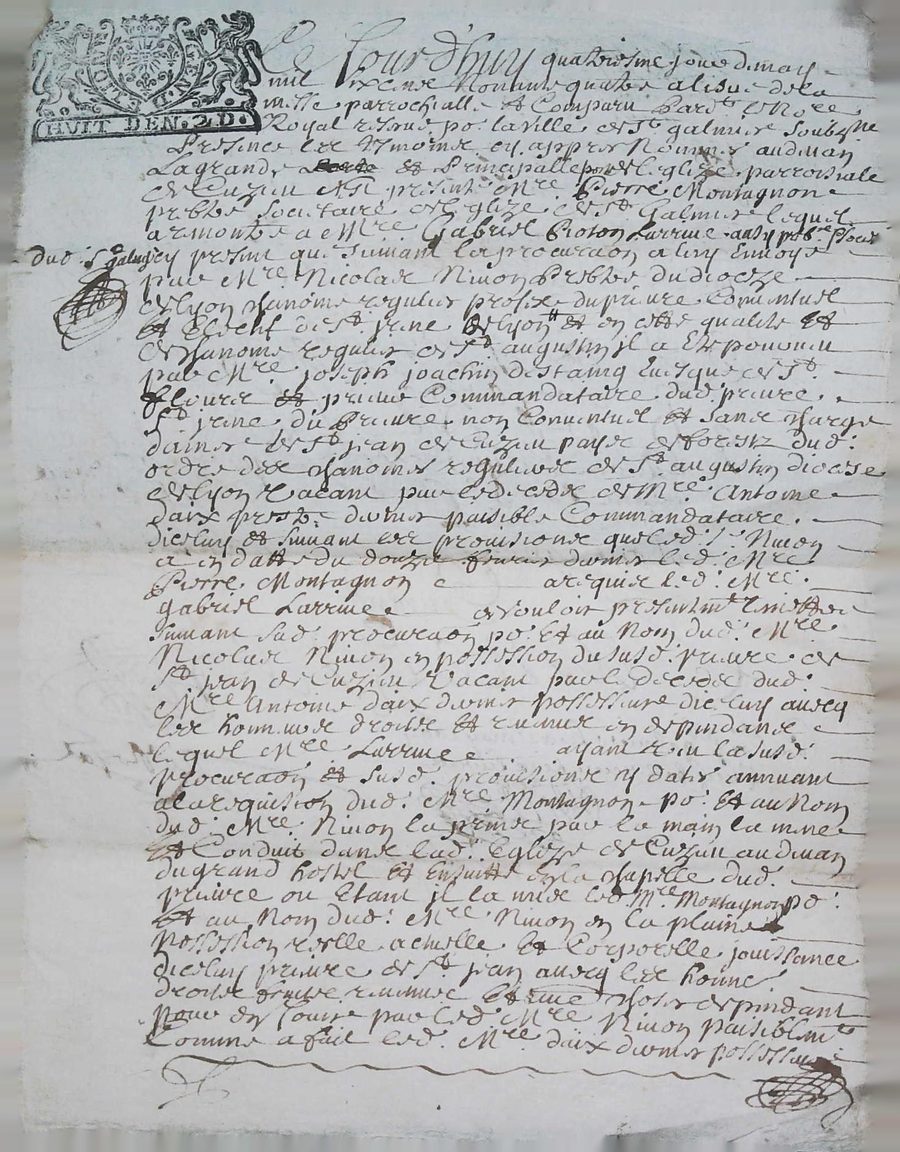 HUIT DEN. 2 D.
Ce Jourd'huy quatriesme jour de may
mil six cens Nonante quatre a lisue de la
messe parrochialle Et Comparu Pards le Nore
Royal reservé po. la ville de St galmier Soubzne
Presence les tesmoins cy appres Nommes audevan
La grande porte et Principalle porte de leglize parroissiale
de Cuzieu Est present Mre Pierre Montagnon
prebtre Societaire de leglize de St Galmier lequel
a remontre a Mre Gabriel Larrive aussy pbre Socr
dud. St galmier
cy present que Suivant la procuraon a luy Envoye
par Mre Nicolas Nivon Prebtre du dioceze
de lyon chanoine regulier profex du prieure Conventuel
Et de St jrine de lyon et en cette qualite Et
de chanoine regulier de St augustin jl a Ete pourveu
par Mre joseph joachin destaing Evesque de St
flour et prieur Commandataire dud. prieure
St jrine du Prieure non Conventuel Et sans charge
dames de St jean de Cuzieu payx de forestz dud.
ordre des chanoines reguliers de St augustin dioceze
de lyon vacant par le deces de Mre Antoine
daix prestre dernier paisible Commandataire
dicluy et suivant les provisions que led. Sr Nivon
a en datte du douze fevrier dernier led. Mre
Pierre Montagnon a requis led. Mre
Gabriel Larrive de vouloir presentemt mettre
suivant sad. procuraon po. Et au Nom dud. Mre
Nicolas Nivon en possession du susd. prieure de
St jean de Cuzieu vacant par le deces dud.
Mre Antoine daix dernier possesseur dicluy avecq
les honneurs droits Et revenus en dependans
lequel Mre Larrive ayant veu la susd.
procuraon et susd. provisions cy datés annuant
a la requisition dud. Mre Montagnon po. Et au Nom
dud. Mre Nivon la prins par la main la mene
Et Conduit dans lad. Eglize de Cuzieu audevan
du grand hostel et Ensuitte de la chapelle dud.
prieure ou Etant jl la mis led. Mre Montagnon po.
Et au Nom dud. Mre Nivon en la plaine
possession reelle actuelle Et Corporelle jouissance
dicluy prieure de St jean avecq les honne.
droits fruits revenus Et autres choses dependant
pour en jouir par led. Mre Nivon paisiblemt
Comme a fait led. Mre daix dernier possesseur